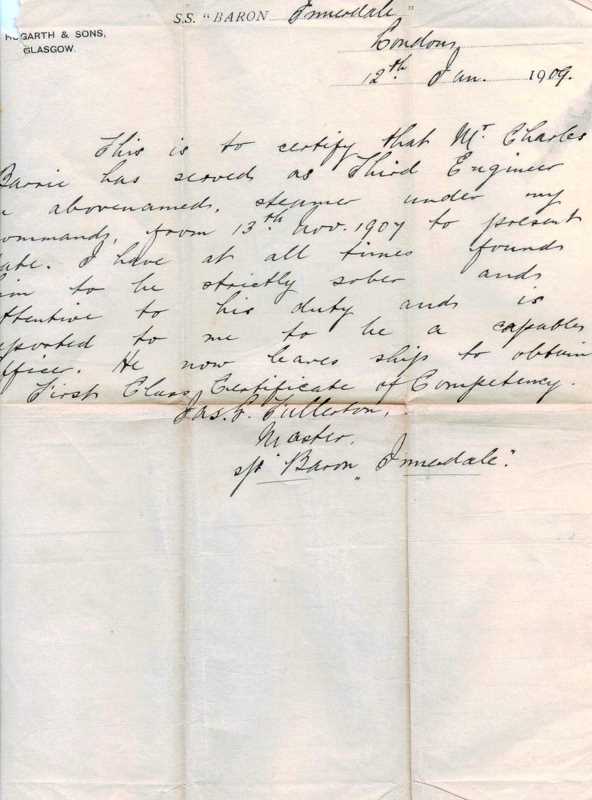 S.S. "BARON Innerdale"
HOGARTH & SONS,
GLASGOW.
London,
12th Jan. 1909.
This is to certify that Mr Charles
Barrie has served as Third Engineer
n abovenamed, steamer under my
ommand, from 13th Nov. 1907 to present
ate. I have at all times found
im to be strictly sober and
ttentive to his duty and is
eported to me to be a capable
fficer. He now leaves ship to obtain
First Class Certificate of Competency.
Jas. Fullerton,
Master,
s/s "Baron Innerdale".